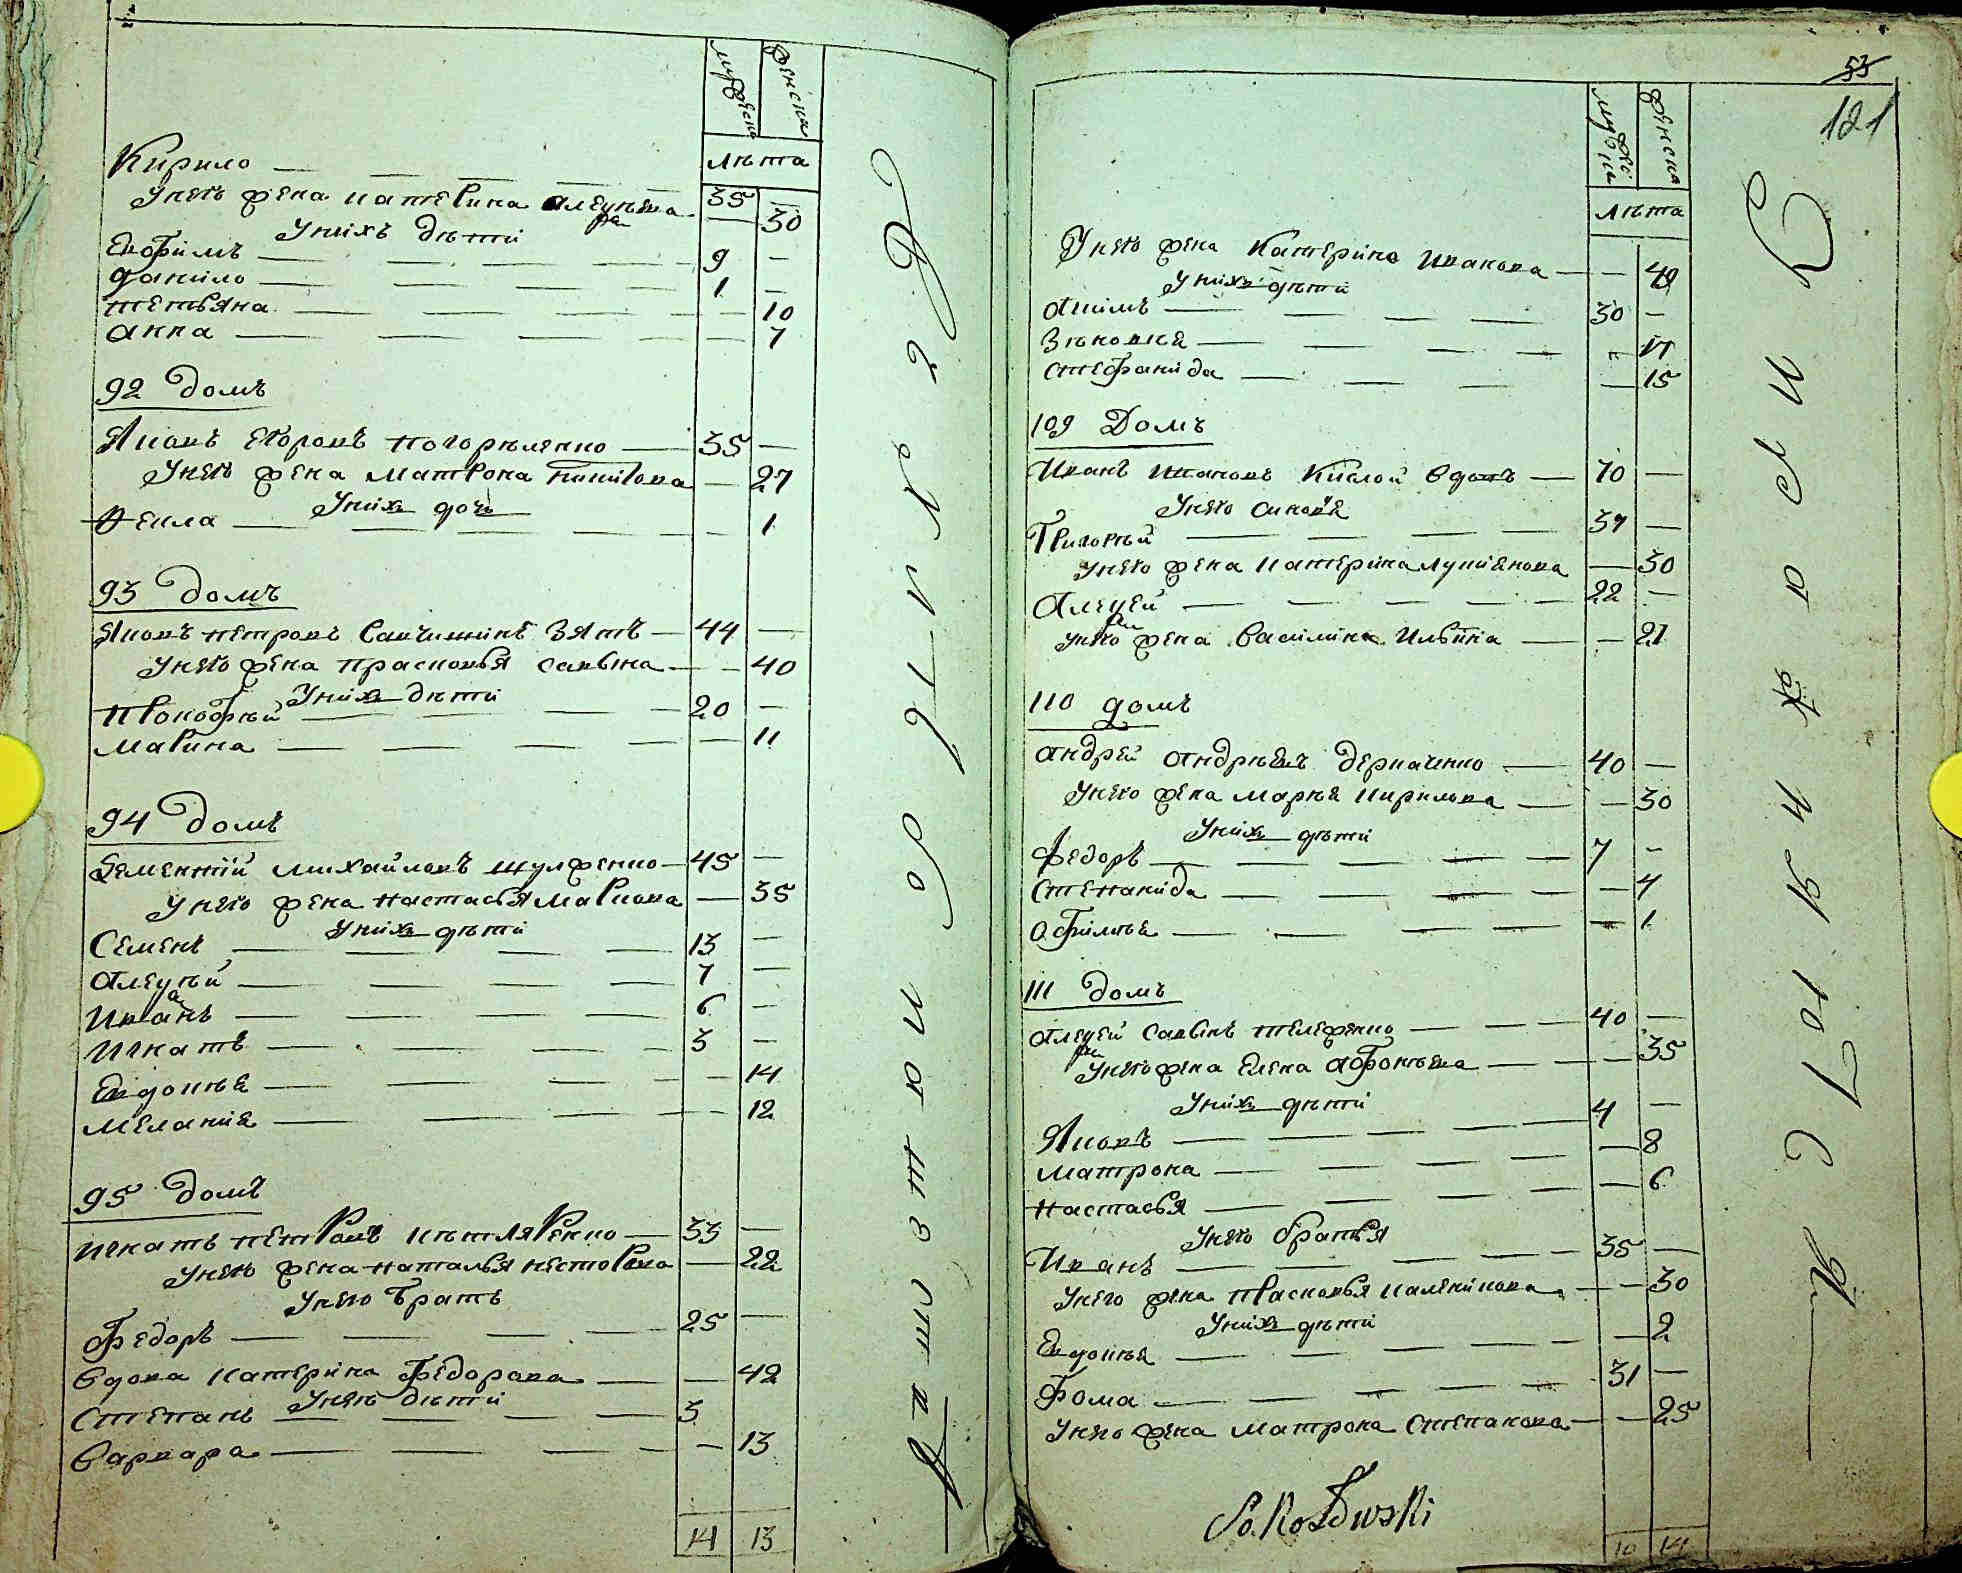 мужеска женска
лѣта
Кирило — 35 —
Унего жена катерина алеѯѣева — 30
Унихъ дѣти
Евфимъ — 9 —
данило — 1 —
тетьяна — 10
анна — 7
92 домъ
Яковъ егоровъ погорѣленко — 35 —
Унего жена матрона — 27
Униxъ дочь
Ѳекла — 1
93 домъ
Яковъ петровъ Савчишинъ зять — 44 —
Унего жена прасковья савына — 40
Унихъ дѣти
Прокофѣй — 20 —
марина — 11
94 домъ
Дементий михайловъ шулженко — 45 —
Унего жена настасья маркова — 35
Унихъ дѣти
Семенъ — 13 —
алеѯѣй — 7 —
Иванъ — 6 —
Игнатъ — 3 —
Евдокѣя — 14
меланія — 12
95 домъ
игнатъ петровъ кѣтляренко — 33 —
Унего жена наталья нестерова — 22
Унего братъ
Федоръ — 25 —
вдова катерина Федорова — 42
Унеѣ дѣти
Степанъ — 3
варвара — 13
14 13
53
121
мужеска женска
лѣта
Унего жена Катерина иванова — 40
Унихъ дѣти
акимъ — 30 —
Зѣновия — 17
стефанида — 15
109 Домъ
Иванъ Кислой вдовъ — 70 —
Унего синовя
Григорѣй — 37 —
унего жена катерина лукиянова — 30
алеѯей — 22 —
унего жена василина Ильина — 21
110 домъ
андрей андрѣевъ деркаченко — 40 —
Унего жена марья кирилова — 30
Унихъ дѣти
федоръ — 7 —
степанида — 4
офимѣя — 1
111 домъ
алеѯей савынъ тележенко — 40 —
Унего жена Елена афонѣева — 35
Унихъ дѣти
Яковъ — 4 —
матрона — 8
настасья — 6
Унего братья
Иванъ — 35 —
Унего жена прасковья каленикова — 30
Унихъ дѣти
Евдокѣя — 2
Фома — 31 —
Унего жена матрона степанова — 25
Sokołowski
10 14